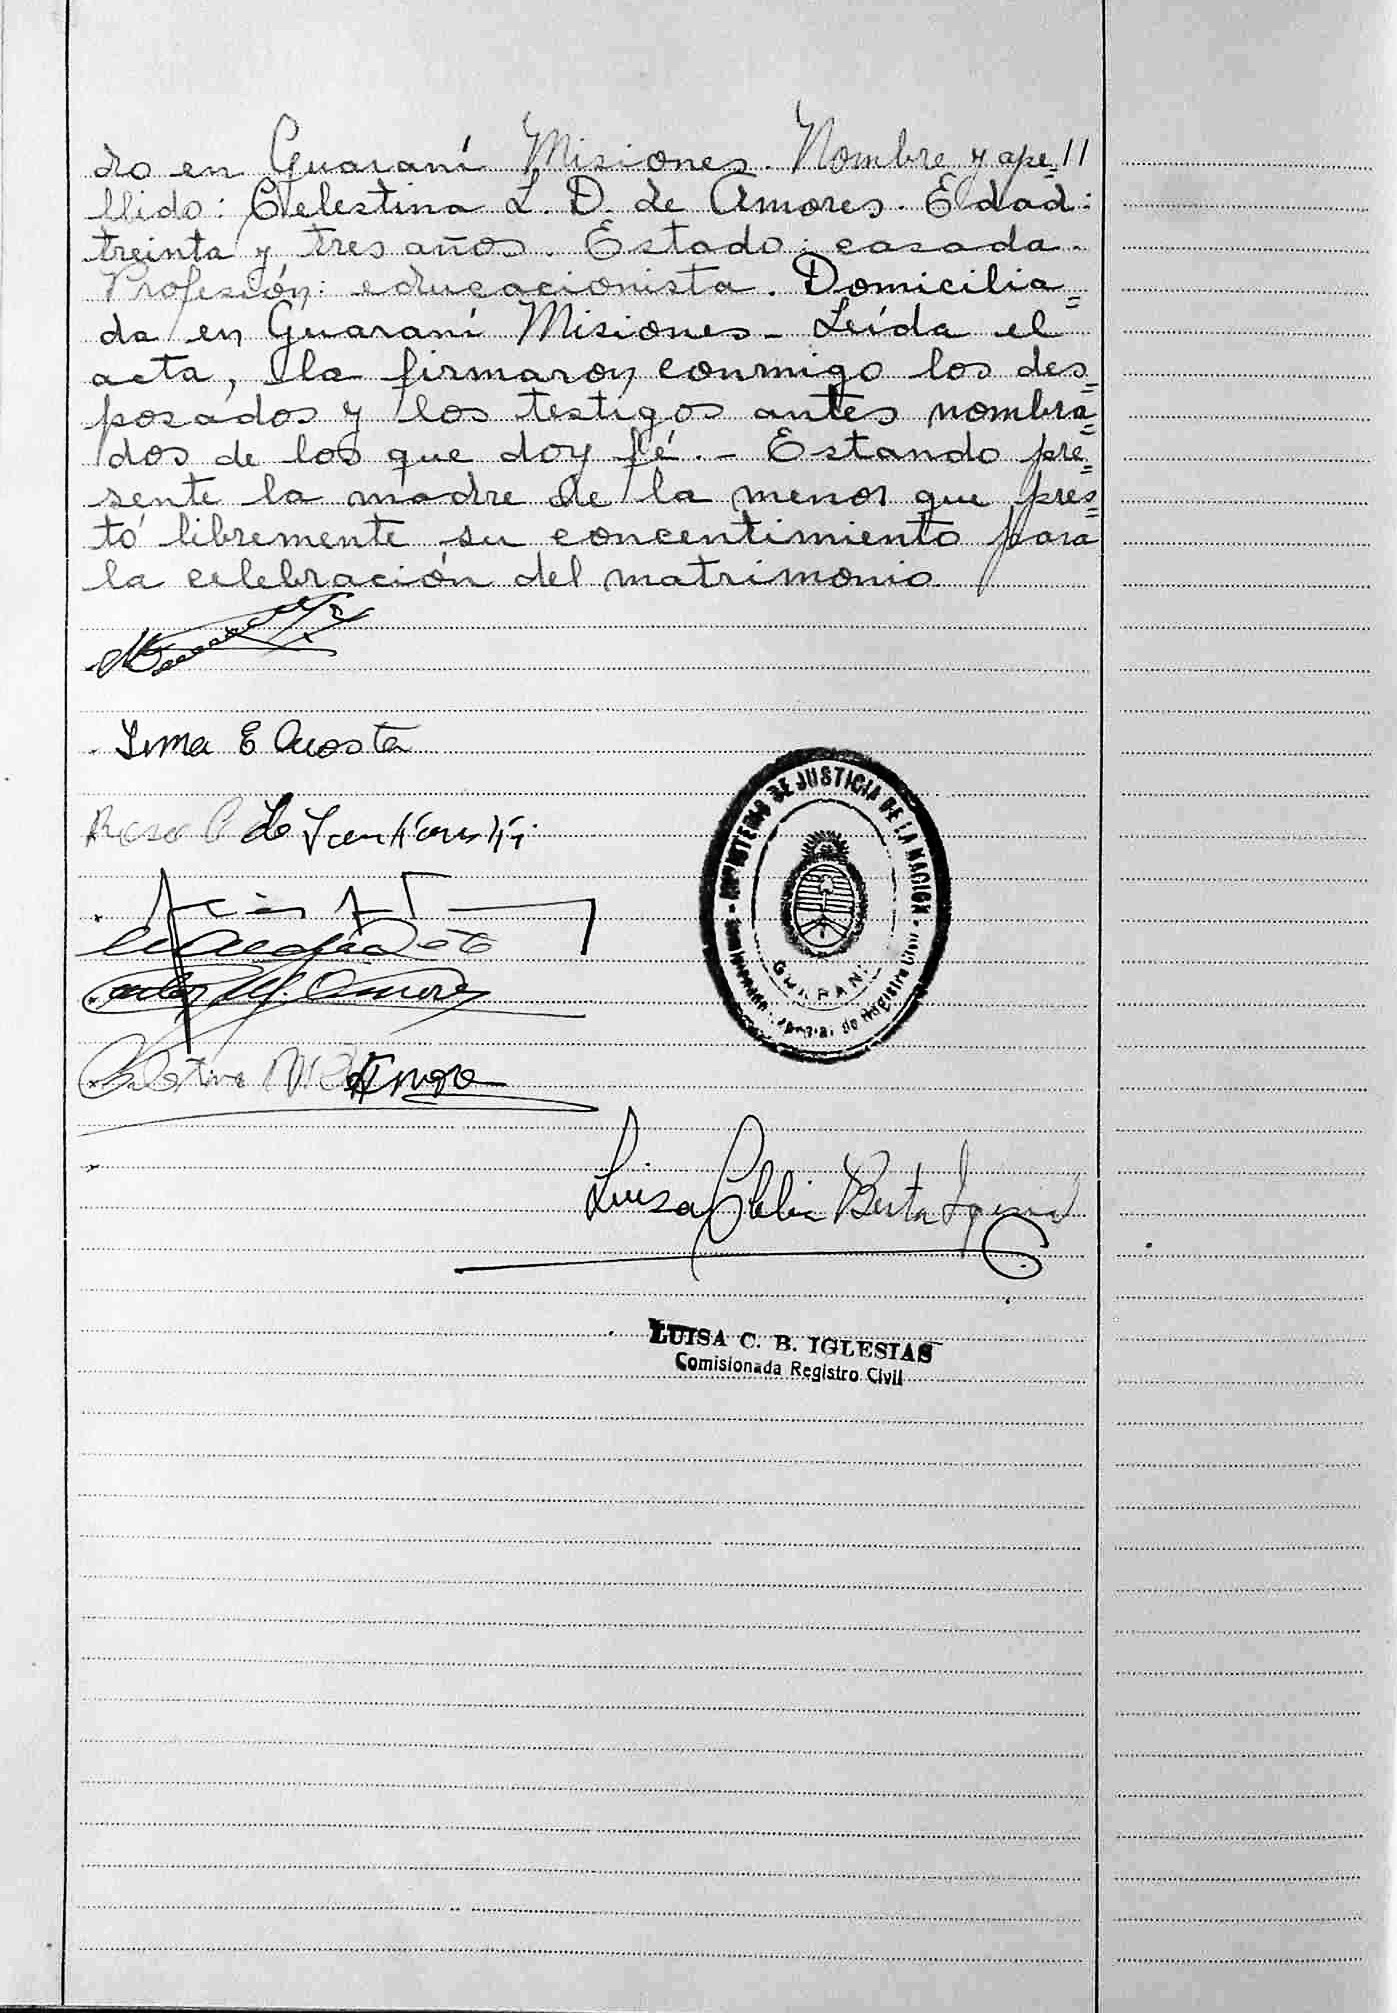 do en Guaraní Misiones. Nombre y ape=//
llido: Celestina L. D. de Amores. Edad:
treinta y tres años. Estado: casada.
Profesión: educacionista. Domicilia=
da en Guaraní Misiones - Leída el
acta, la firmaron conmigo los des=
posados y los testigos antes nombra=
dos de los que doy fé. - Estando pre=
sente la madre de la menor que pres=
tó libremente su concentimiento para
la celebración del matrimonio.
E Acosta
de
MINISTERIO DE JUSTICIA DE LA NACION
de Registro Civil
GUARANI
Amores
Luisa Berta
LUISA C. B. IGLESIAS
Comisionada Registro Civil